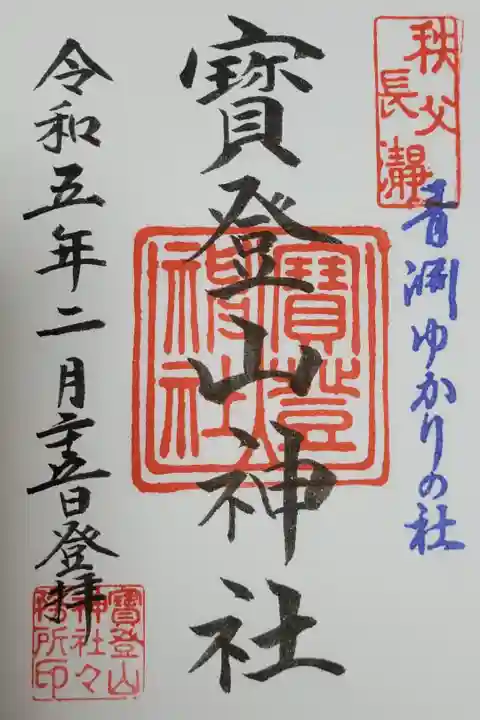 秩父
長瀞
青渕ゆかりの社
寶登山神社
寶登山
神社
令和五年二月十五日登拝
寶登山
神社々
務所印